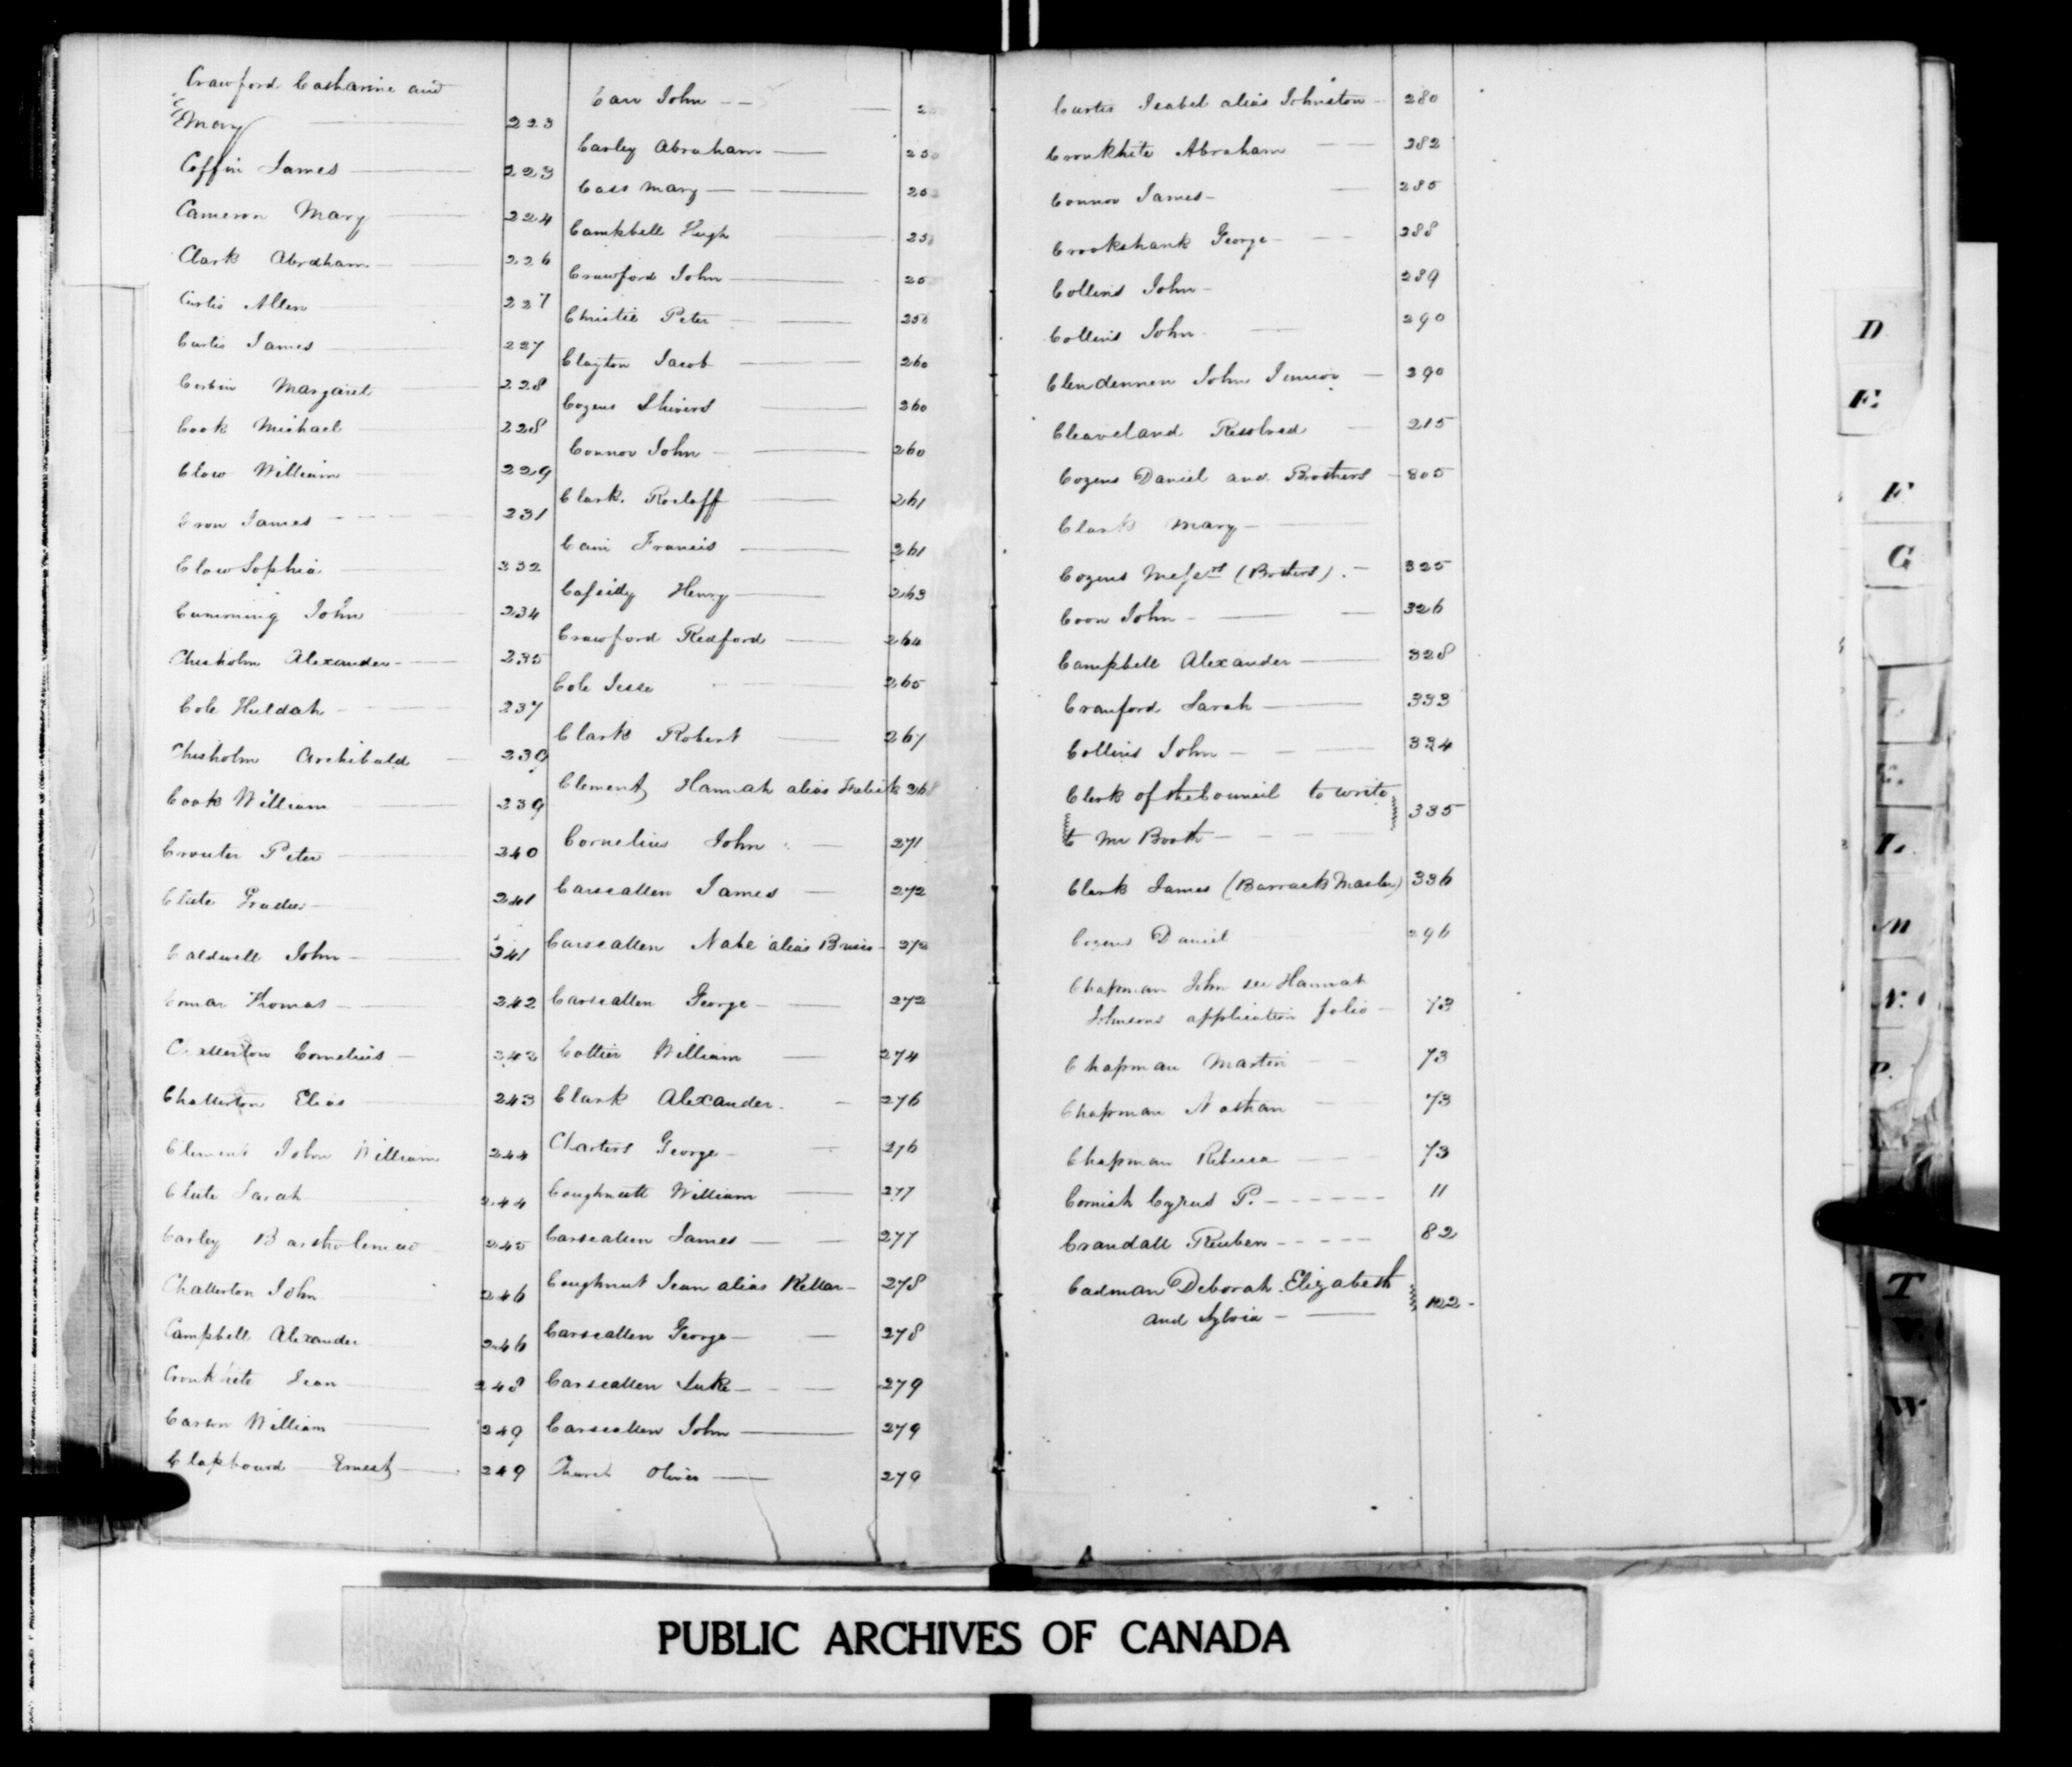 Crawford Catharine and
Mary 223
Coffin James 223
Cameron Mary 224
Clark Abraham 226
Curtis Allen 227
Curtis James 227
Corbin Margaret 228
Cook Michael 228
Clow William 229
Cron James 231
Clow Sophia 232
Cumming John 234
Chisholm Alexander 235
Cole Huldah 237
Chisholm Archibald 239
Cook William 239
Crouter Peter 240
Clute 241
Caldwell John 241
Comar Thomas 242
Chatterton Cornelius 243
Chatterton Elias 243
Clement John William 244
Clute Sarah 244
Carley Bartholemew 245
Chatterton John 246
Campbell Alexander 246
Cronkhite Jean 248
Carson William 249
Clapboard Ernest 249
Carr John
Carley Abraham
Cass Mary
Campbell Hugh
Crawford John
Christie Peter
Clayton Jacob 260
Cozens Shivers 260
Connor John 260
Clark Roeloff 261
Cain Francis 261
Cassidy Henry 263
Crawford Redford 264
Cole Jesse 265
Clark Robert 267
Clement Hannah alias 268
Cornelius John 271
Carscallen James 272
Carscallen alias 272
Carscallen George 272
Collier William 274
Clark Alexander 276
Charters George 276
Coughnett William 277
Carscallen James 277
Coughnut Jean alias Kellar 278
Carscallen George 278
Carscallen Luke 279
Carscallen John 279
Church Oliver 279
Curtis Isabel alias Johnston 280
Cronkhite Abraham 282
Connor James 285
Crookshank George 288
Collins John 289
Collins John 290
Clendennen John Junior 290
Cleaveland Resolved 215
Cozens Daniel and Brothers 305
Clark Mary
Cozens Messrs (Brothers) 325
Coon John 326
Campbell Alexander 328
Craneford Sarah 333
Collins John 334
Clerk of the Council to write
to Mr Booth 335
Clark James (Barrack Master) 336
Cozens Daniel 296
Chapman John see Hannah
Johnsons application folio 73
Chapman Martin 73
Chapman Nathan 73
Chapman Rebecca 73
Cornish Cyrus P. 11
Crandall Reuben 82
Cadman Deborah Elizabeth
and Sylvia 122
D
E
F
G
L
M
N
P
T
W
PUBLIC ARCHIVES OF CANADA